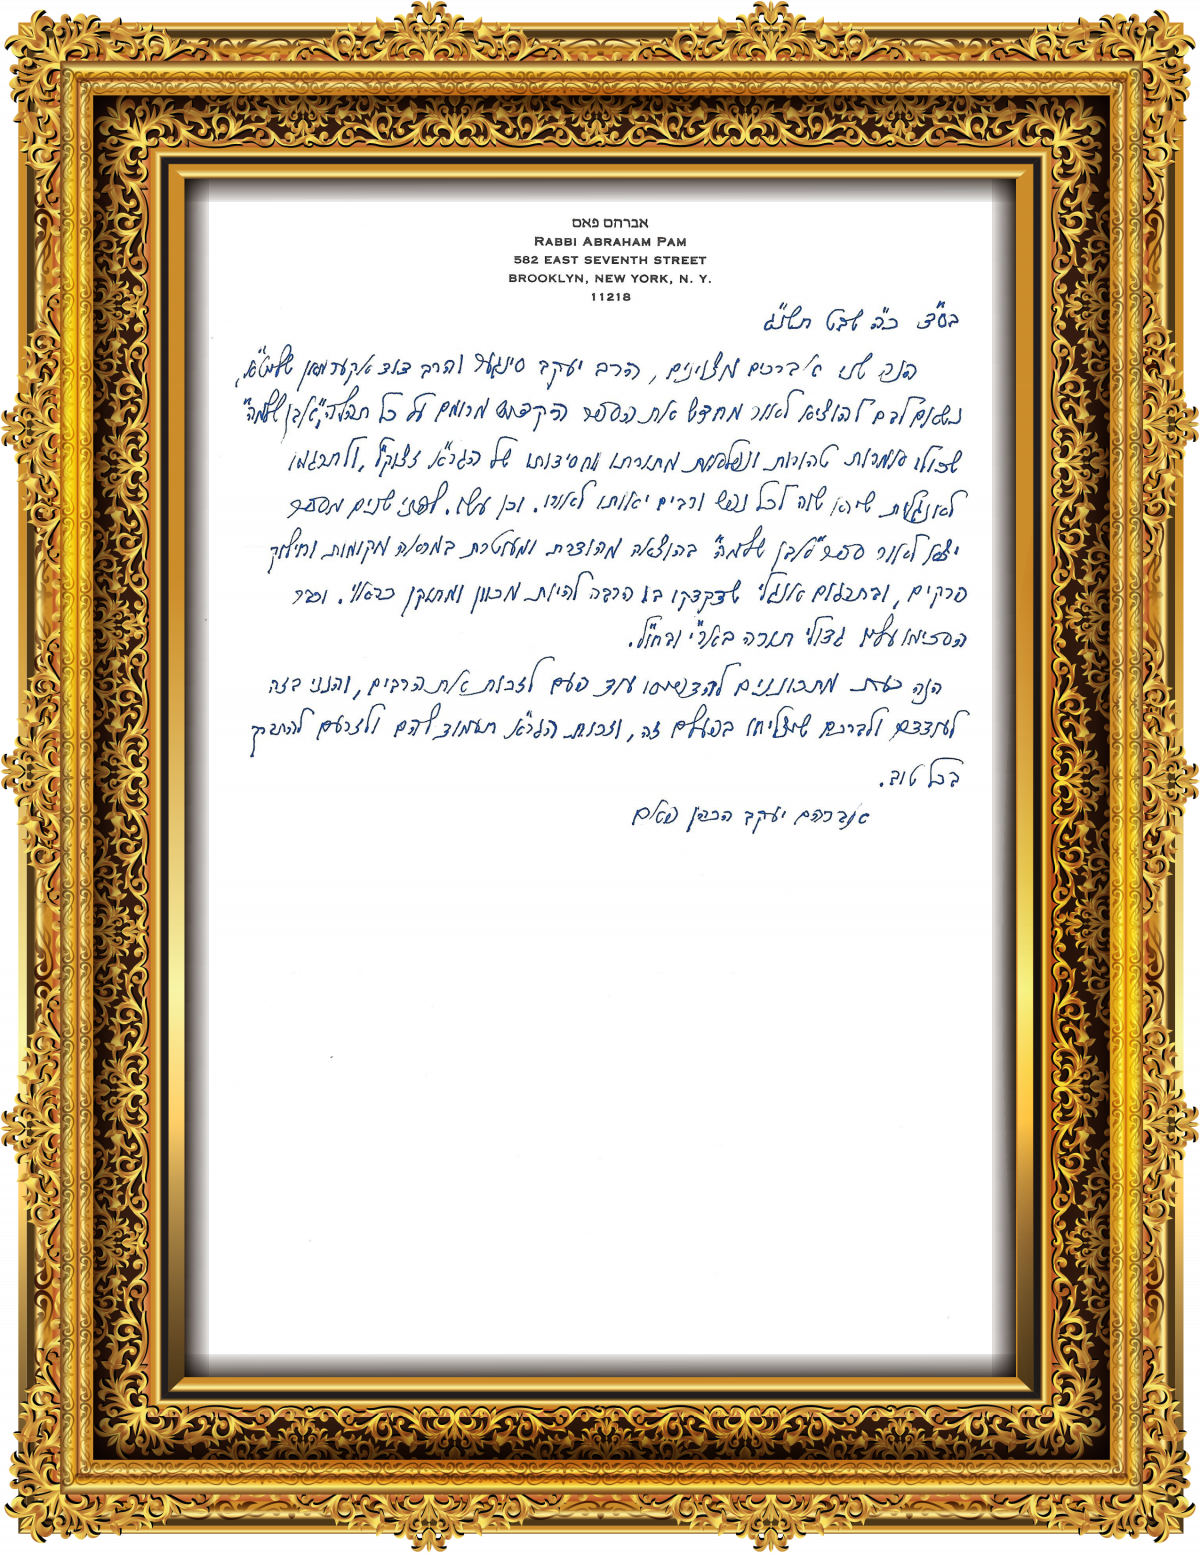 אברהם פאם
RABBI ABRAHAM PAM
582 EAST SEVENTH STREET
BROOKLYN, NEW YORK, N. Y.
11218
בס"ד כ"ה שבט תשנ"ג
הנה שני אברכים מצוינים, הרב יעקב סינגער והרב דוד אקערמאן שליט"א,
נשאם לבם להוציא לאור מחדש את הספר הקדוש מרומם על כל תהלה, "אבן שלמה"
שכולו אמרות טהורות ונשלפות מתורתו וחסידותו של הגר"א זצוק"ל, ולתרגמו
לאנגלית שיהא שוה לכל נפש ורבים יאותו לאורו. וכן עשו. לפני שנים מספר
יצא לאור ספר "אבן שלמה" בהוצאה מהודרת ומעוטרת במראה מקומות וחילוק
פרקים, ובתרגום אנגלי שדקדקו בו הרבה להיות מכוון ומתוקן כראוי. וכבר
הסכימו עליו גדולי תורה באר"י ובחו"ל.
הנה כעת מתכוננים להדפיסו עוד פעם לזכות את הרבים, והנני בזה
לעודדם ולברכם שיצליחו בפעלם זה, וזכות הגר"א תעמוד להם ולזרעם להתברך
בכל טוב.
אברהם יעקב הכהן פאם